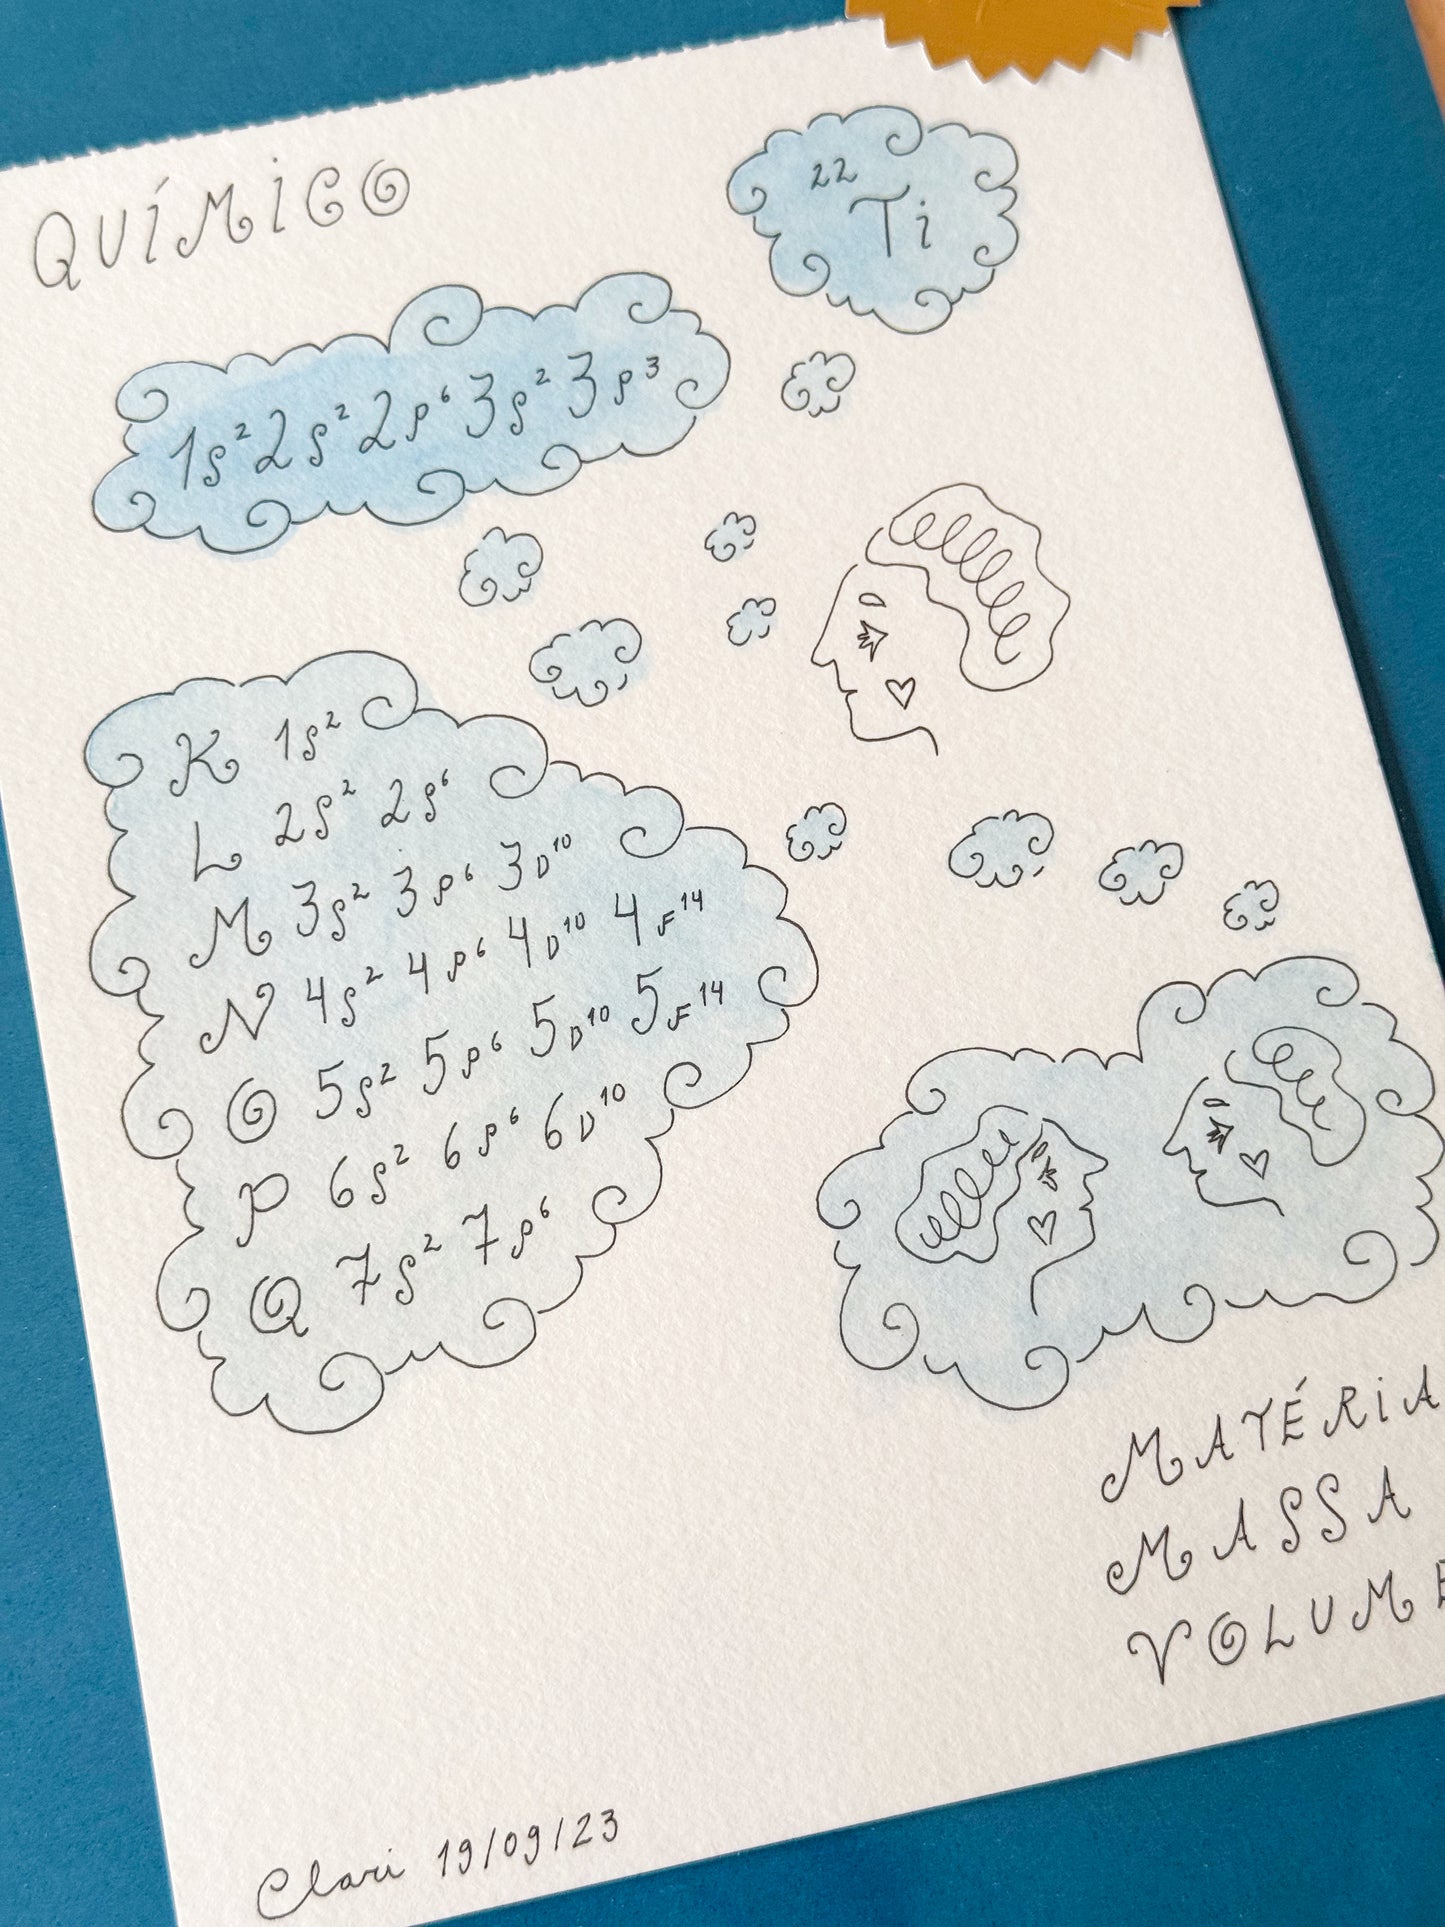 QUÍMICO
22
Ti
1s² 2s² 2p⁶ 3s² 3p³
K 1s²
L 2s² 2s⁶
M 3s² 3p⁶ 3D¹⁰
N 4s² 4p⁶ 4D¹⁰ 4F¹⁴
O 5s² 5p⁶ 5D¹⁰ 5F¹⁴
P 6s² 6p⁶ 6D¹⁰
Q 7s² 7p⁶
MATÉRIA
MASSA
VOLUME
Clari 19/09/23